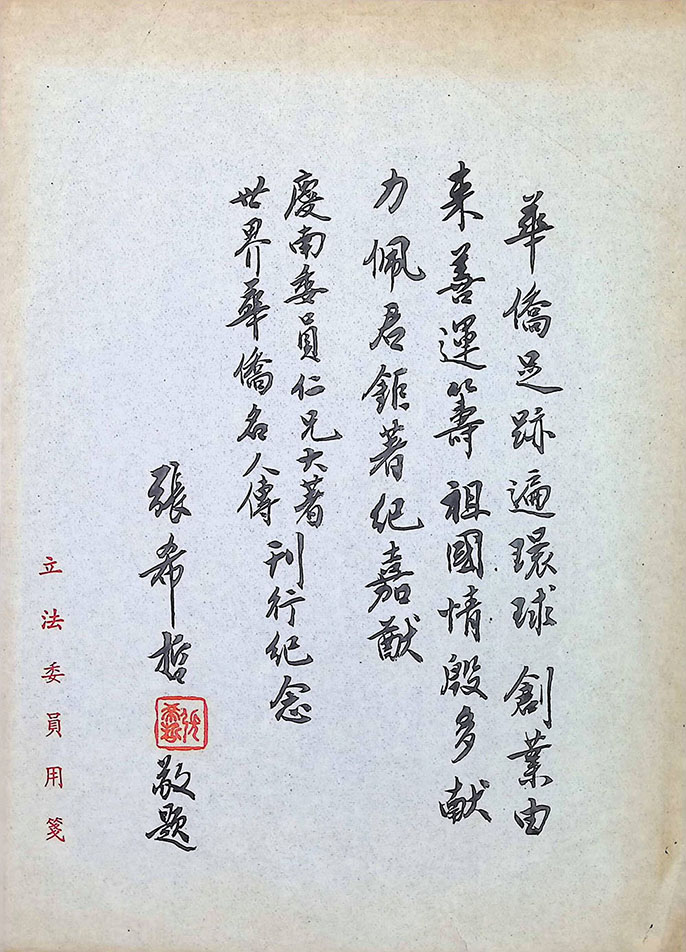 華僑足跡遍環球 創業由
来善運籌祖國情殷多献
力佩君鉅著纪嘉猷
慶南委員仁兄大著
世界華僑名人傳
刊行纪念
張希哲
敬題
立法委員用箋